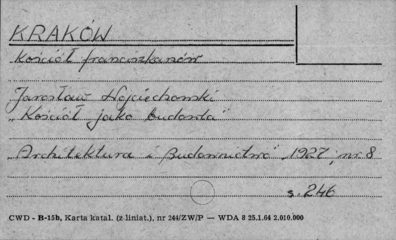 KRAKÓW
Kościół franciszkanów
Jarosław Wojciechowski
„Kościół jako budowla"
„Architektura i Budownictwo" 1927, nr. 8
s. 246
CWD - B-15b, Karta katal. (z liniat.), nr 244/ZW/P — WDA 8 25.1.64 2.010.000